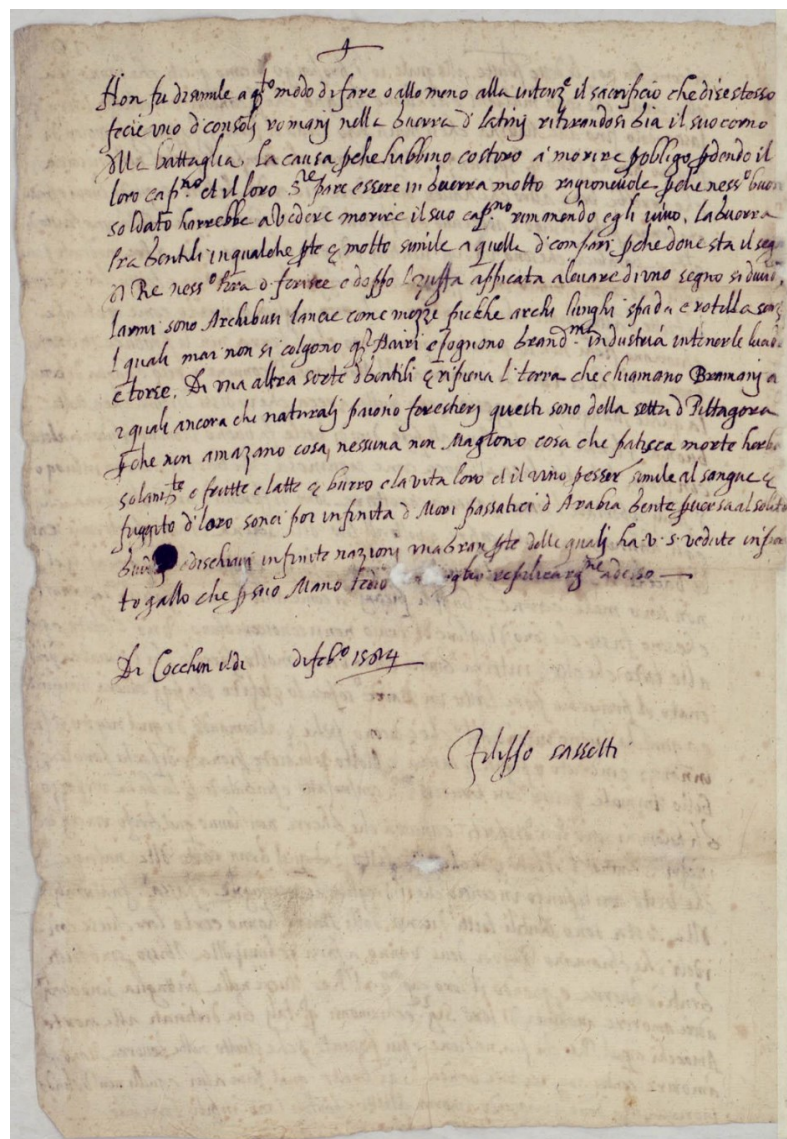 Non fu disimile a q.to modo di fare o allo meno alla intenz.e il sacrificio che di se stesso
fecie uno d consoli romani nella guerra d latini ritirandosi gia il suo corno
dlla battaglia. La causa pche habbino costoro a morire p obligo pdendo il
loro cap.no et il loro S.re pare essere in guerra molto ragionevole pche ness.o buon
soldato harrebbe a vedere morire il suo cap.no rimanendo egli vivo. La guerra
fra gentili in qualche pte è molto simile a quella d confari pche dove sta il seg
d Re ness.o ferisce e doppo l zuffa appicata a levare di uno segno si
larmi sono Archibusi lancie come mezze picche archi lunghi spada e rotella
l quali mai non si colgono e pognono grand.ma industria in tenerle
e torse. Di una altra sorte d gentili è ripiena l terra che chiamano Bramanj
i quali ancora che naturalj paiono forestierj questi sono della setta d Pittagora
pche non amazano cosa nessuna non Magiono cosa che patisca morte herbe
solam.te e frutte e latte e burro è la vita loro et il vino p esser simile al sangue è
fuggito d loro sonci poi infinita d Mori passatici d Arabia gente pversa al solito
e di schiavi infinite nazionj ma gran pte delle qualj ha v. s. vedute in por
togallo che p suo Mano replicargne adesso
Di Cocchin il dì di feb.o 1584
Filippo Sassetti